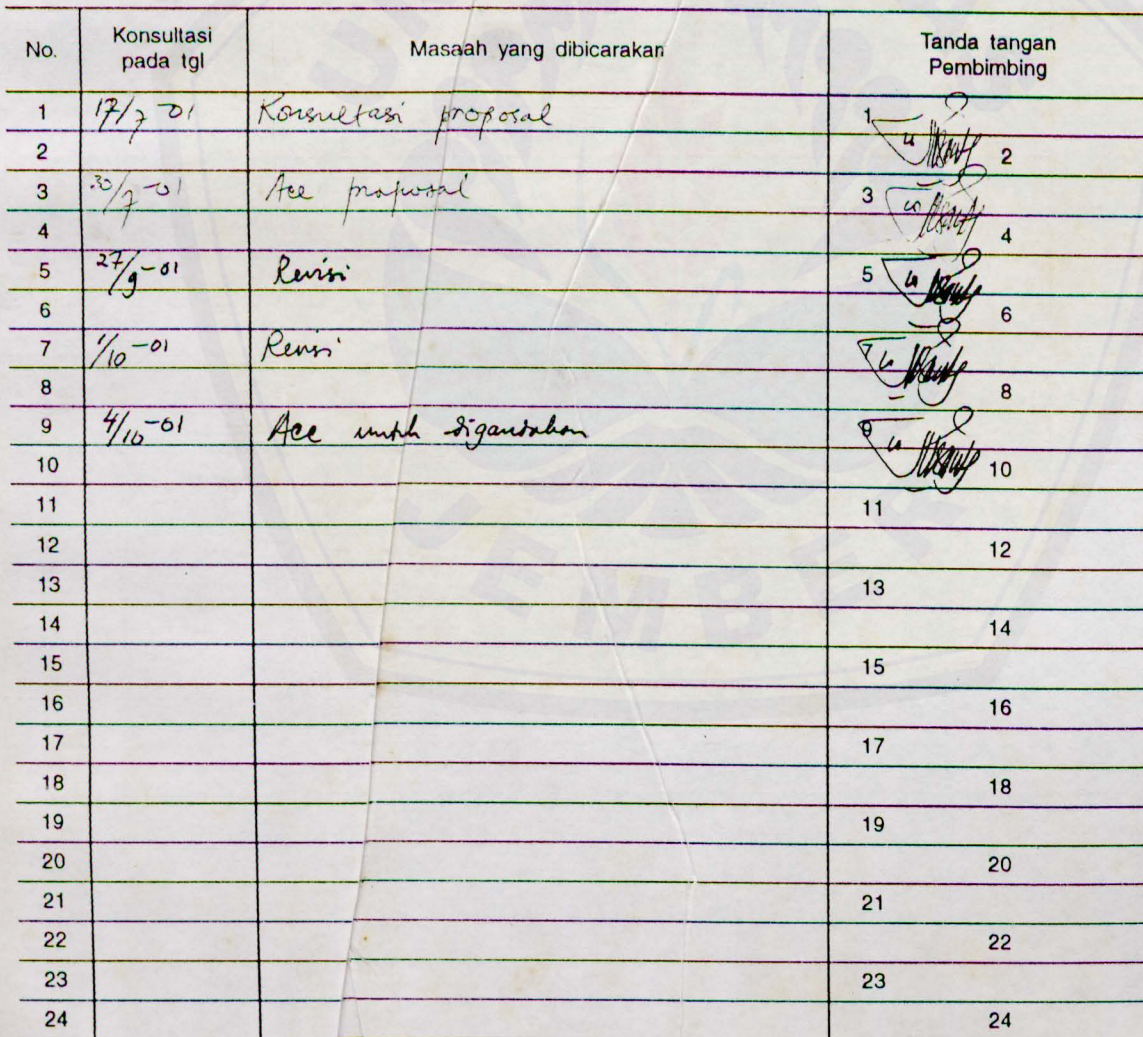 No. Konsultasi pada tgl Masaah yang dibicarakan Tanda tangan Pembimbing
1 17/7-01 Konsultasi proposal 1
2 2
3 30/7-01 Acc proposal 3
4 4
5 27/9-01 Revisi 5
6 6
7 1/10-01 Revisi 7
8 8
9 4/10-01 Acc untuk digandakan 9
10 10
11 11
12 12
13 13
14 14
15 15
16 16
17 17
18 18
19 19
20 20
21 21
22 22
23 23
24 24
JEMBER